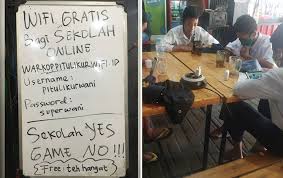 WIFI GRATIS
Bagi SEKOLAH
ONLINE
WARKOPPITULIKURWIFI.ID
Username :
pitulikurwani
Password :
superwani
Sekolah YES
GAME NO !!!
{ Free : teh hangat }